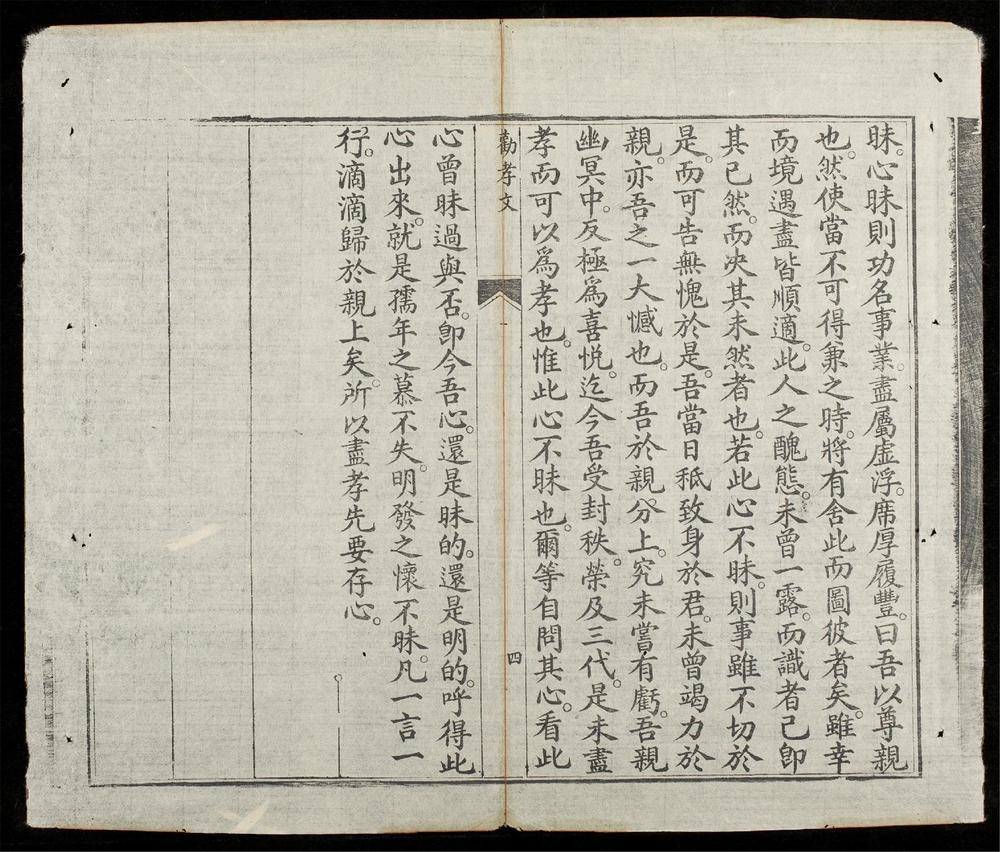 昧。心昧則功名事業。盡屬虛浮。席厚履豐。曰吾以尊親
也。然使當不可得兼之時。將有舍此而圖彼者矣。雖幸
而境遇盡皆順適。此人之醜態。未曾一露。而識者已卽
其已然。而决其未然者也。若此心不昧。則事雖不切於
是。而可告無愧於是。吾當日秪致身於君。未曾竭力於
親。亦吾之一大憾也。而吾於親分上。究未嘗有虧。吾親
幽冥中。反極爲喜悅。迄今吾受封秩。榮及三代。是未盡
孝而可以爲孝也。惟此心不昧也。爾等自問其心。看此
勸孝文
四
心曾昧過與否。卽今吾心。還是昧的。還是明的。呼得此
心出來。就是孺年之慕不失。明發之懷不昧。凡一言一
行。滴滴歸於親上矣。所以盡孝先要存心。